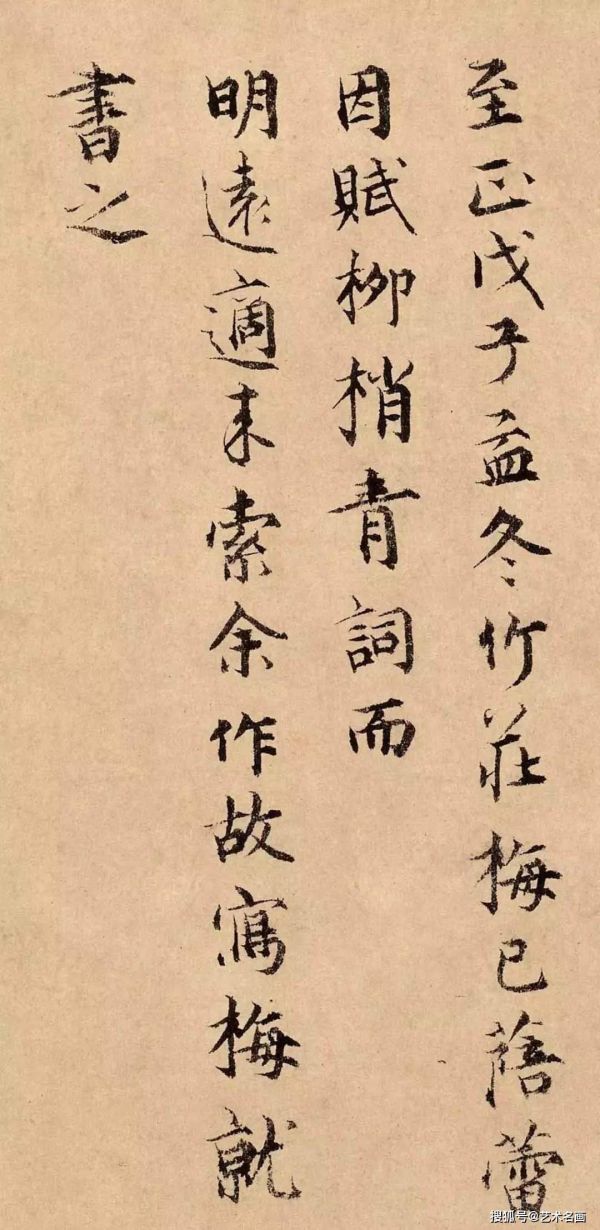 至正戊子孟冬竹莊梅已蓓蕾
因賦柳梢青詞而
明遠適來索余作故寫梅就
書之
搜狐号@艺术名画